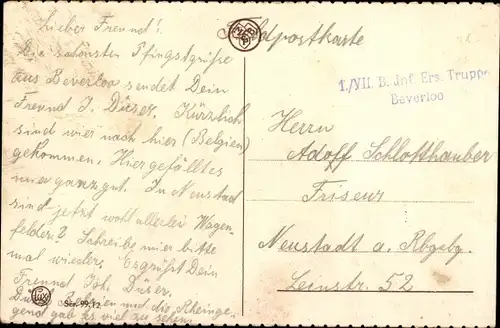 Lieber Freund!
Die schönsten Pfingstgrüße
aus Beverloo sendet Dein
Freund J. Düser. Kürzlich
sind wier nach hier (Belgien)
gekommen. Hier gefällt es
mier ganz gut. In Neustad
sind jetzt wohl allerlei Wagen-
felder? Schreibe mier bitte
mal wieder. Es grüßt Dein
Freund Joh. Düser.
und die Rheinge-
gend gab es viel zu sehen.
Lux
Ser. 99/12
Feldpostkarte
1./VII. B. Jnf. Ers. Truppe
Beverloo
Herrn
Adolf Schlotthauber
Friseur
Neustadt a. Rbgebg.
Leinstr. 52